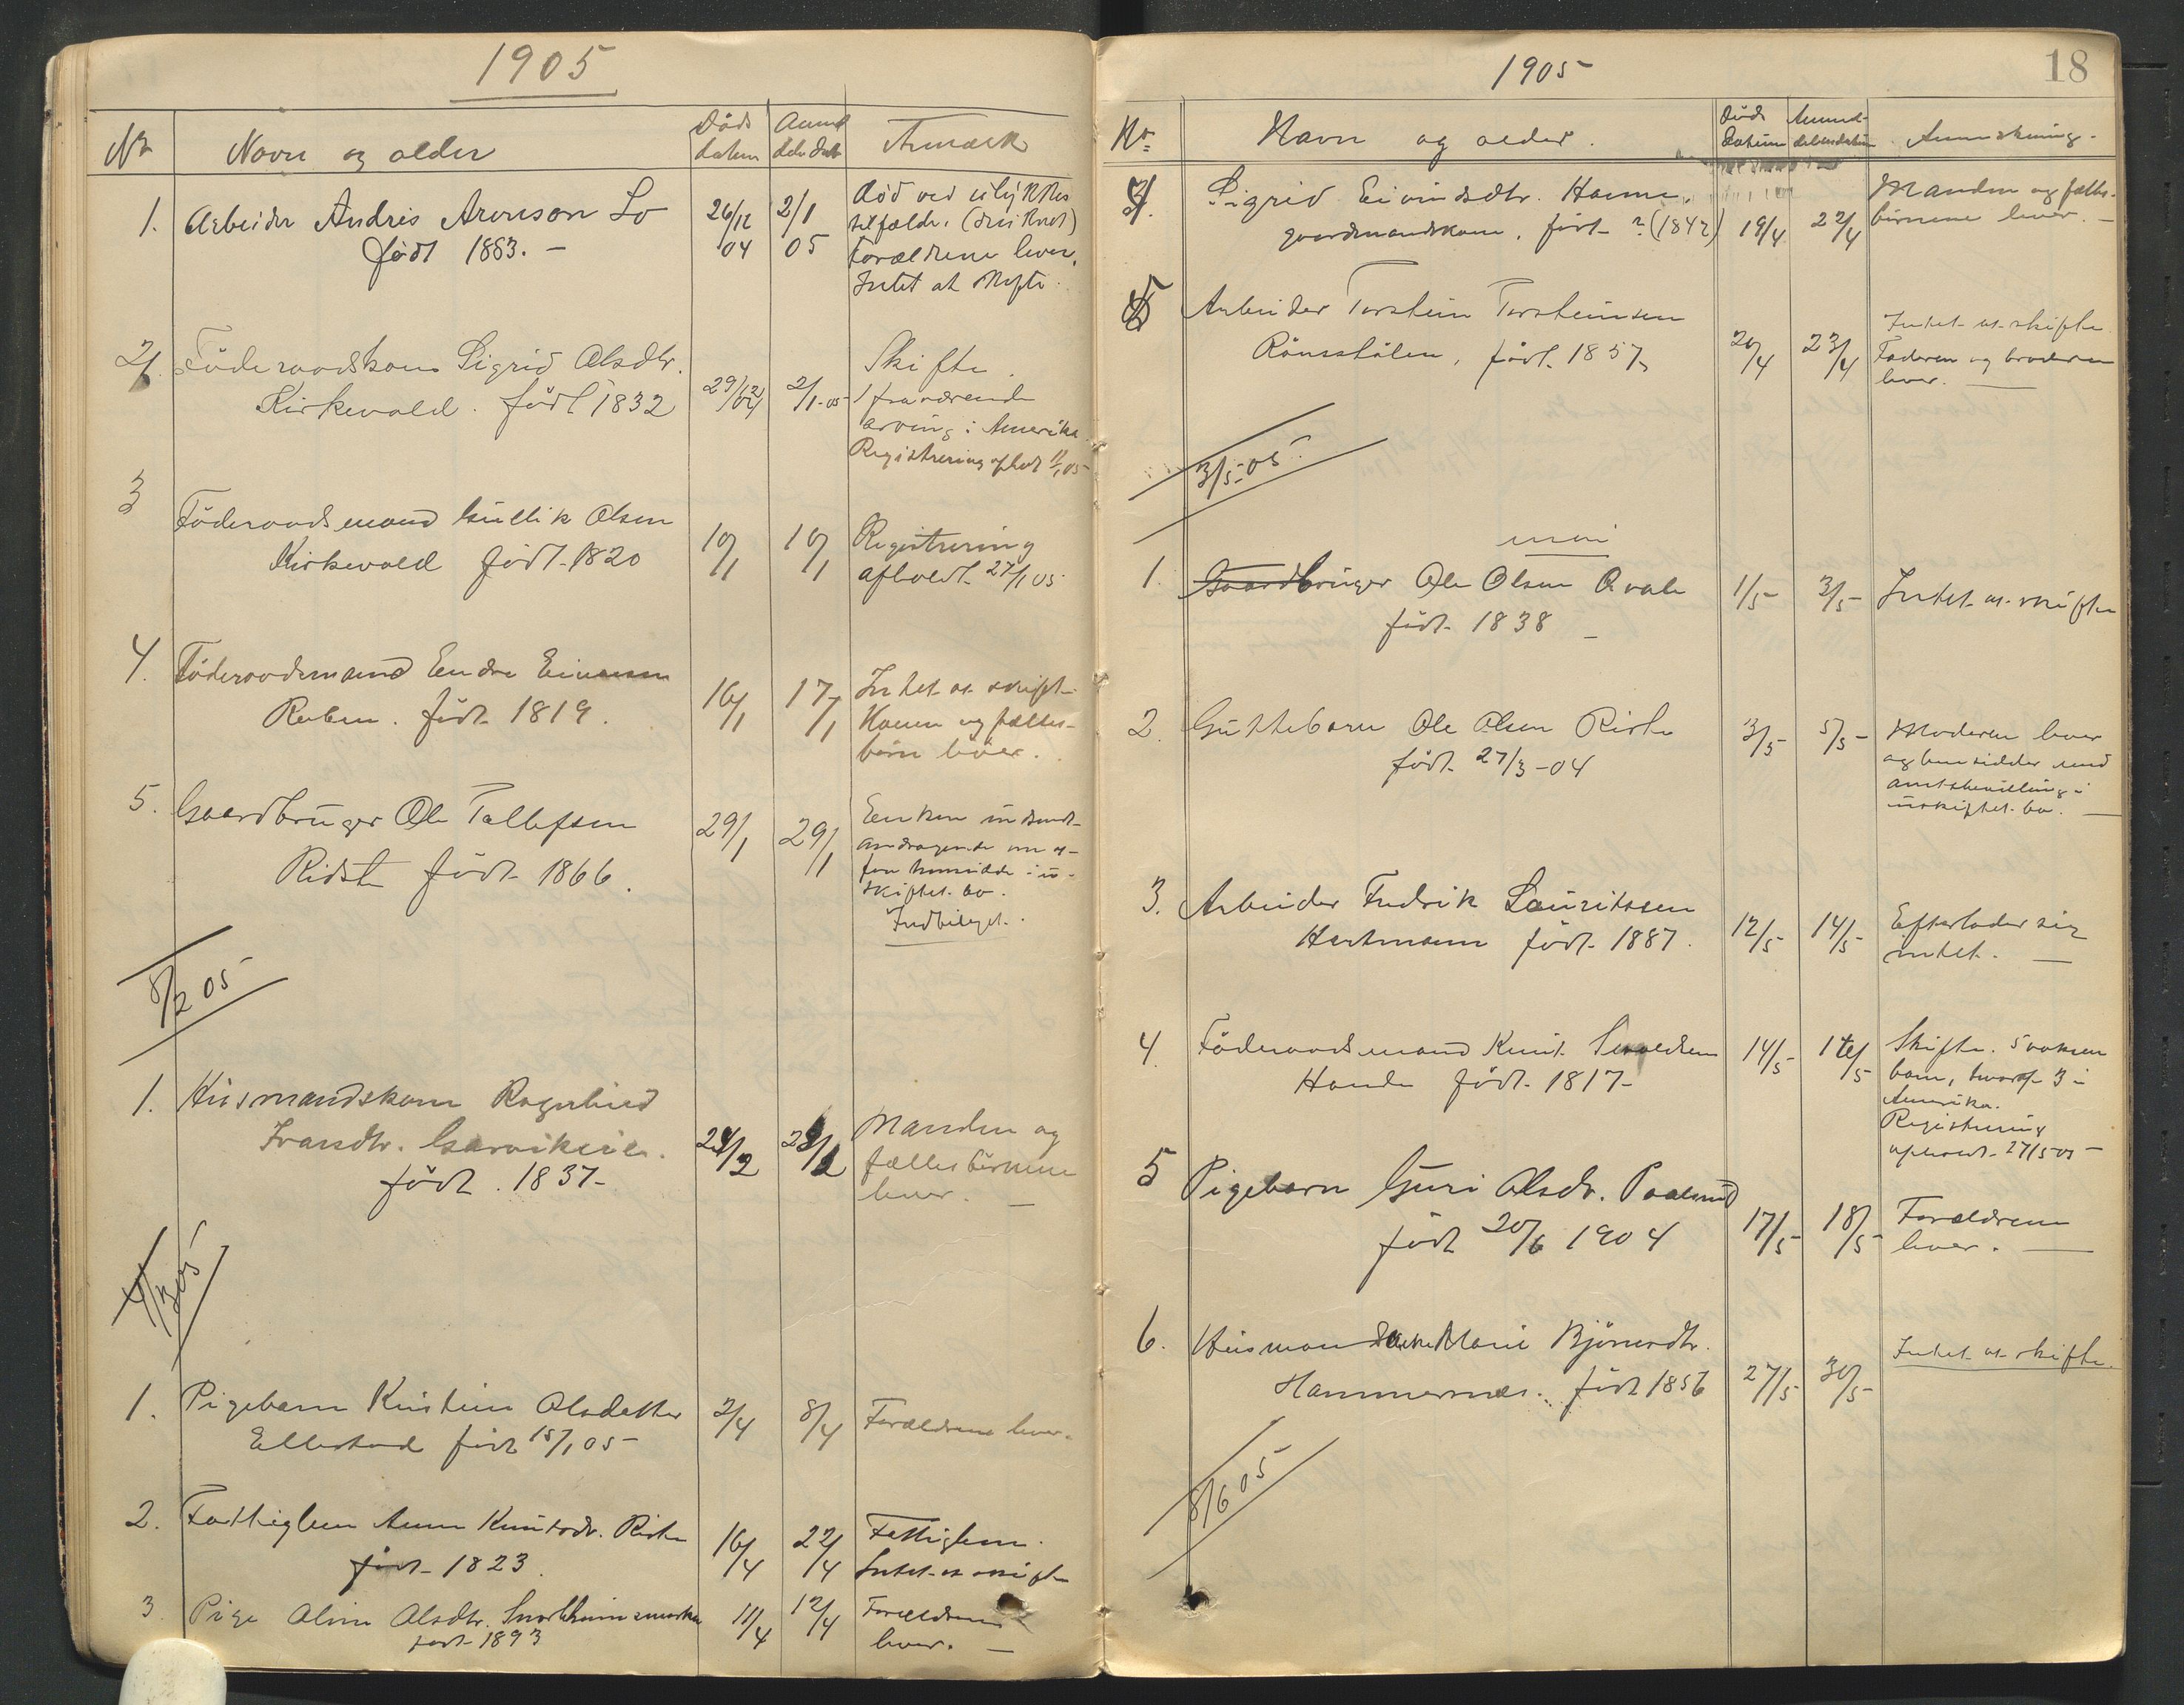 1905
No
Navn og alder
Döds datum
Anmeldelsdat
Anmærk
1.
Arbeider Andris Aronson Lo
født 1883. -
26/12 04
2/1 05
död ved ulykkes
tilfælde. (druknet)
Forældrene lever.
Intet at skifte.
2/
Föderaadskone Sigrid Olsdtr.
Kirkevold. født 1832
29/12 04
2/1-05
Skifte.
1 fraværende
arving i Amerika.
Registrering afholdt 11/1 05
3
Föderaadsmand Gullik Olsen
Kirkevold født 1820
10/1
10/1
Registrering
afholdt 27/1 05
4.
Föderaadsmand Endre
født 1819.
16/1
17/1
Intet at skifte
Konen og fælles-
børn lever.
5.
Gaardbruger Ole Tollefsen
Ridste født 1866.
29/1
29/1
Enken indsendt
andragende om at
faa hensidde i u-
skiftet bo.
Indvilget.
8/2 05
1.
Husmandskone Ragnhild
Ivarsdtr.
født. 1837-
24/2
28/2
Manden og
fællesbørnene
lever. -
4/3 05
1.
Pigebarn Kristine Olsdatter
Ellestad født 15/1 05
2/4
8/4
Forældrene lever.
2.
Fattiglem Anne Knutsdr. Riste
født 1823.
16/4
22/4
Fattiglem.
Intet at skifte
3
Pige Oline Olsdtr.
født 1893
11/4
12/4
Forældrene
lever. -
18
1905
No
Navn og alder.
Døds Datum
Anmeldelsesdatum
Anmerkning.
4.
Sigrid Eivindsdtr. Hamre,
gaardmandskone, født ? (1842)
19/4
22/4
Manden og fælles-
børnene lever. -
5
Arbeider Torstein Torsteinsen
Rönsstölen, født 1857
20/4
23/4
Intet at skifte
Faderen og broderen
lever.
3/5-05.
mai
1.
Gaardbruger Ole Olsen Qvale
født 1838 -
1/5
3/5
Intet at skifte
2.
Guttebarn Ole Olsen Riste
født 27/3-04
3/5
5/5
Moderen lever
og hensidder med
amtsbevilling i
uskiftet bo.
3.
Arbeider Fredrik Lauritssen
Hartmann født 1887.
12/5
14/5
Efterlader sig
intet. -
4
Föderaadsmand Knut
Hande født 1817-
14/5
16/5
Skifte. 5 voksne
barn, hvoraf 3 i
Amerika.
Registrering
afholdt 27/5 05 -
5
Pigebarn Guri Olsdr.
født 20/6 1904
17/5
18/5
Forældrene
lever. -
6.
Marie Björnsdtr.
Hammernes. født 1856
27/5
30/5
Intet at skifte.
8/6 05